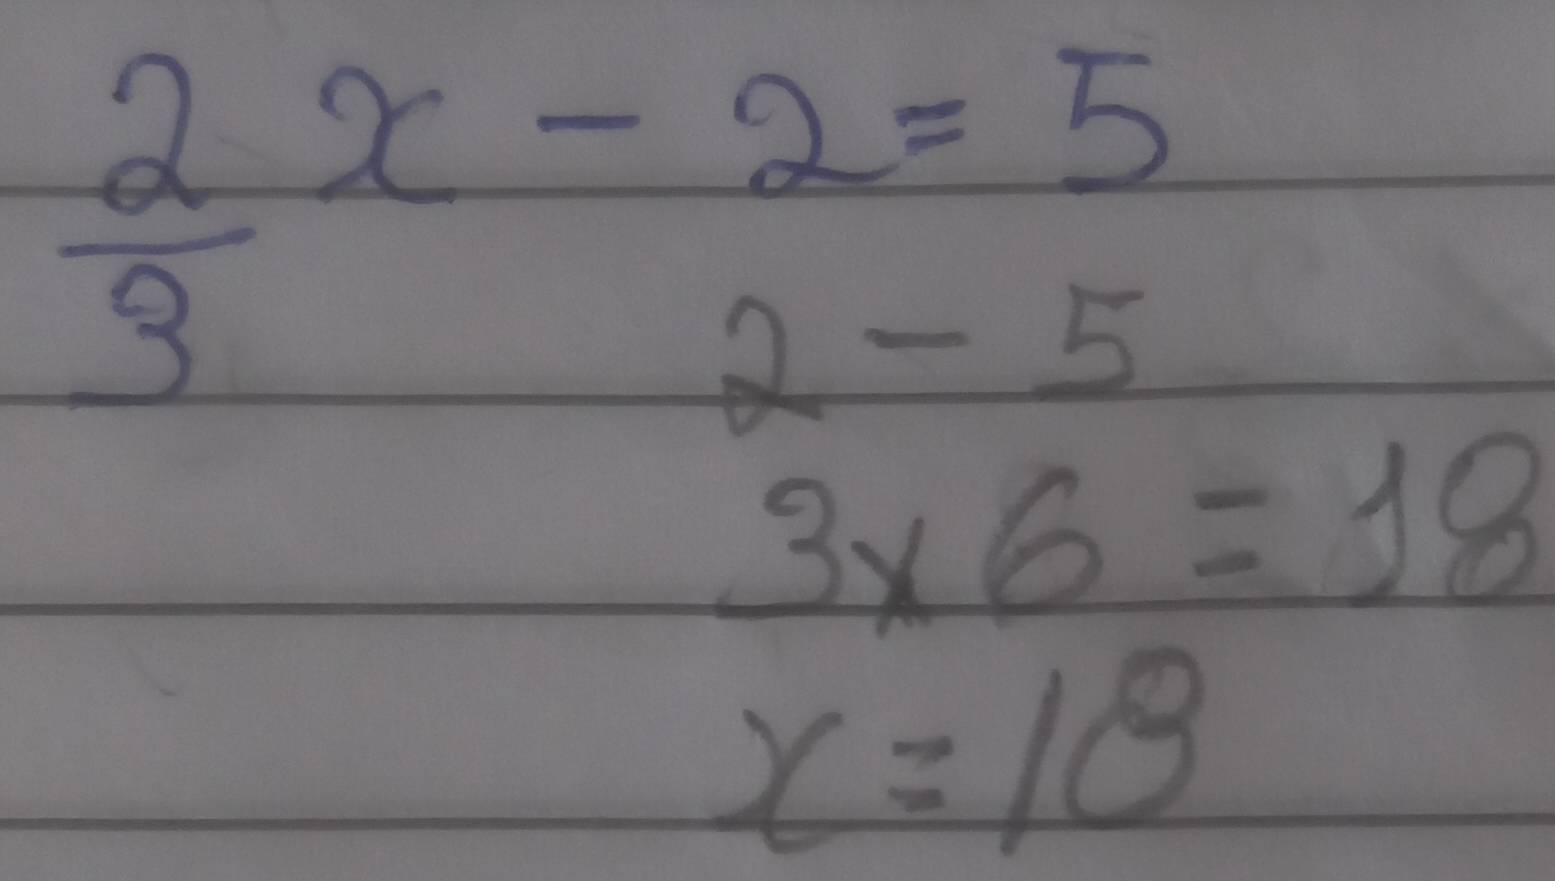 2/3 x - 2 = 5
2 - 5
3 x 6 = 18
x = 18